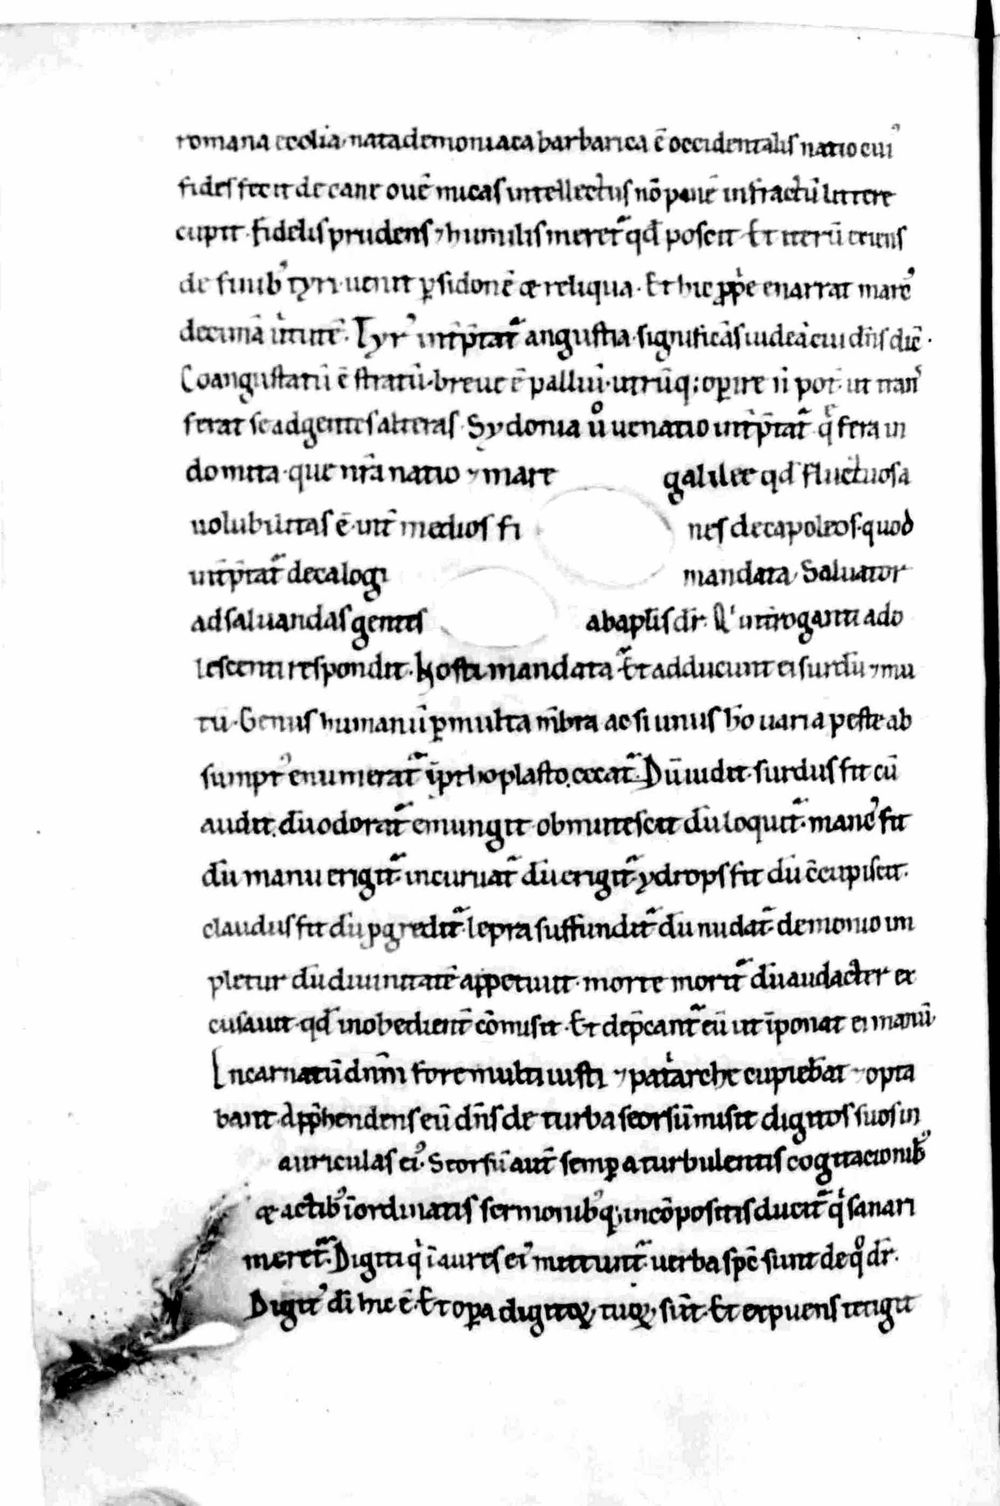 romana eccłia. nata demoniaca barbarica ē occidentalis natio cui᾽
fides fecit de cane ouē micas intellectus nō panē infractū littere
cupit. Fidelis prudens ⁊ humilis meret᷑ qđ poscit. Et iterū exiens
de finib᾽ tyri uenit ꝑ sidonē ⁊ reliqua. Et hic ꝓpͥe enarrat marc᾽
decimā ūtutē. Tyr᾽ int̄p̄tat᷑ angustia. significās iudeā cui dn̄s dic̄.
Coangustatū ē stratū. breue ē palliū. utrūq; oꝑire n̄ pot̄. ut tran᾽
ferat se ad gentes alteras. Sydonia ů uenatio int̄p̄tat᷑. q̄ fera in
domita. que nr̄a natio ⁊ mare galilee qđ fluctuosa
uolubilitas ē. int̄ medios fi nes decapoleos. quod
int̄p̄tat᷑ decalogi mandata. Saluator
ad saluandas gentes a baptis dr̄. Q' int̄roganti ado
lescenti respondit. Nosti mandata. Et adducunt ei surdū ⁊ mu
tū. Genus humanū ꝑ multa mb̄ra ac si unus hō uaria peste ab
sumpt᾽ enumerat᷑ ī ꝓthoplasto. cecat᷑. Dū uidit. surdus fit cū
audit. dū odorat᷑ emungit. obmutescit dū loquit᷑. manc᾽ fit
dū manu erigit᷑. incuruat᷑ dū erigit᷑. ydrops fit dū c̄cupiscit.
claudus fit dū ꝓgredit᷑. lepra suffundit᷑ dū nudat᷑. demonio im
pletur dū diuinitatē appetiuit. morte morit᷑ dū audacter ex
cusauit. qđ inobedient̄ cōmisit. Et dep̄cant᷑ eū ut īponat ei manū.
Incarnatū dn̄m fore multi iusti ⁊ patͥarche cupiebāt ⁊ opta
bant. Apphendens eū dn̄s de turba seorsū misit digitos suos in
auriculas ei᾽. Seorsū aut̄ semꝑ a turbulentis cogitacionib᾽
⁊ actib᾽ īordinatis sermonib᾽q; incōpositis ducit᷑ qͥ sanari
meret᷑. Digiti qͥ ī aures ei᾽ mittunt᷑. uerba sp̄c sunt de qͦ dr̄.
Digit᾽ dī hic ē. Et oꝑa digitoꝝ tuoꝝ sūt. Et expuens tetigit